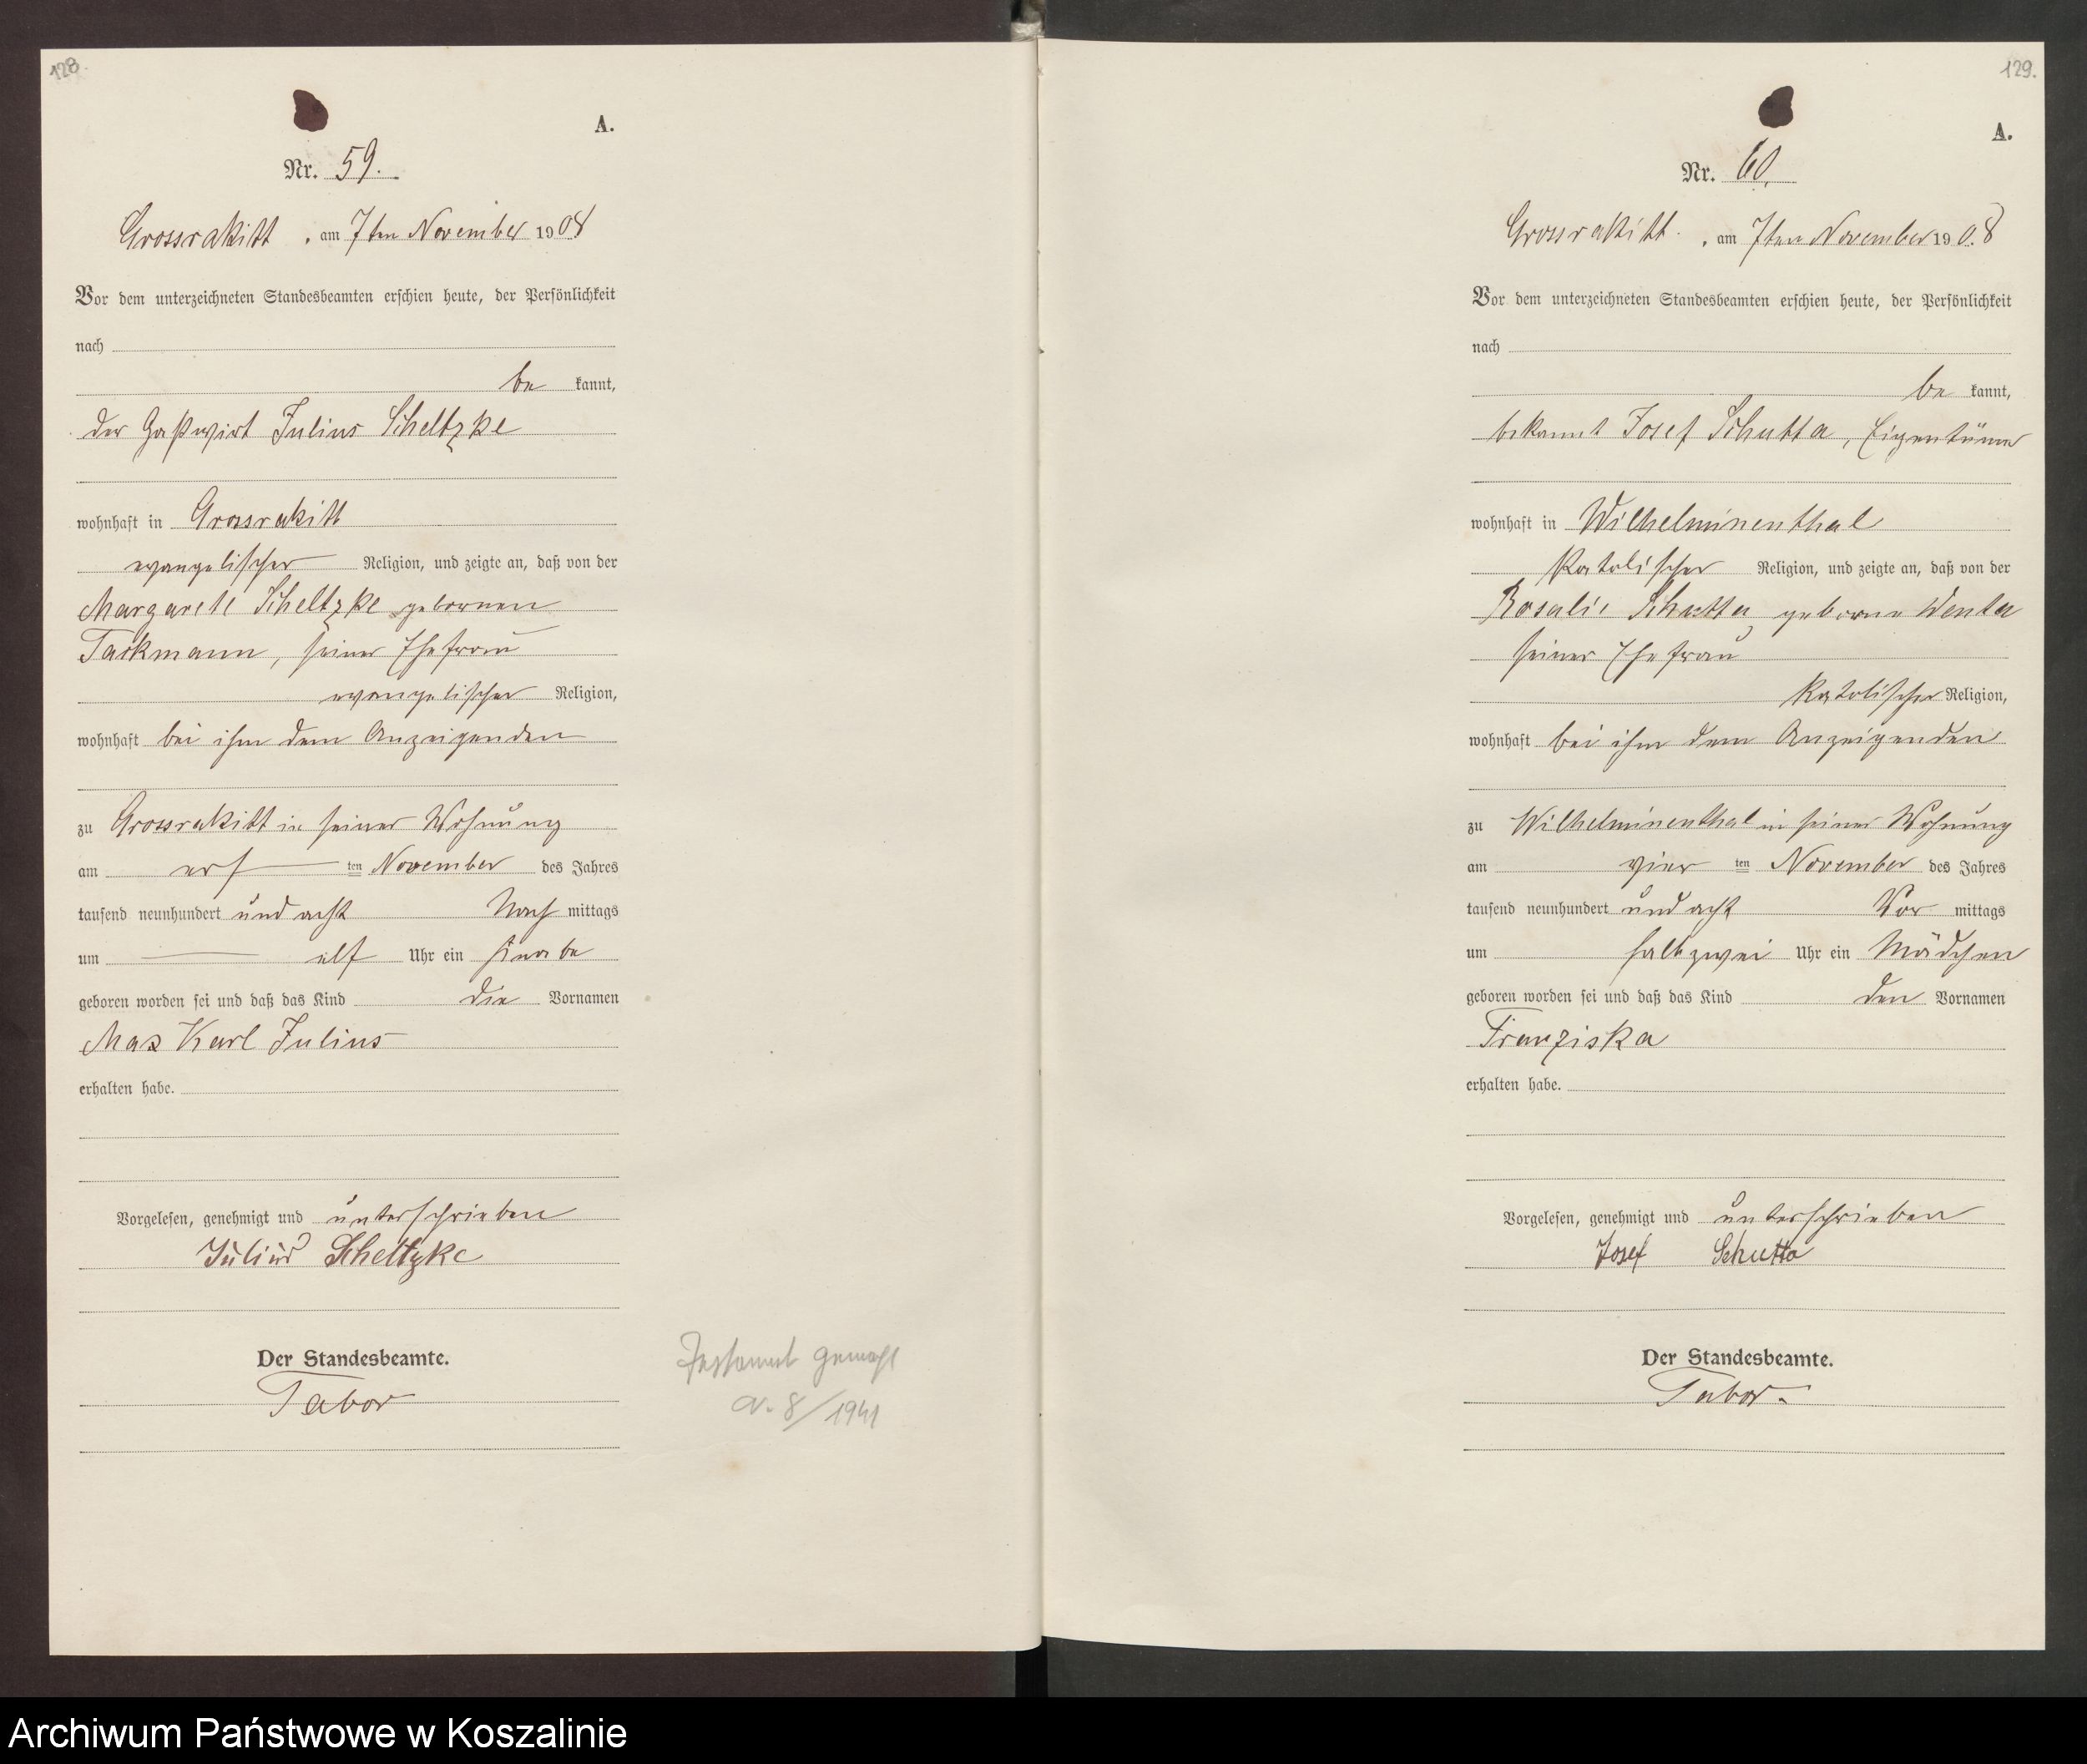 128.
A.
Nr. 59.
Grossrakitt, am 7ten November 1908
Vor dem unterzeichneten Standesbeamten erschien heute, der Persönlichkeit
nach
be kannt,
der Gastwirt Julius Scheltzke
wohnhaft in Grossrakitt
evangelischer Religion, und zeigte an, daß von der
Margarete Scheltzke gebornen
Tackmann, seiner Ehefrau
evangelischer Religion,
wohnhaft bei ihm dem Anzeigenden
zu Grossrakitt in seiner Wohnung
am ten November des Jahres
tausend neunhundert und acht Nach mittags
um elf Uhr ein Knabe
geboren worden sei und daß das Kind die Vornamen
Max Karl Julius
erhalten habe.
Vorgelesen, genehmigt und unterschrieben
Julius Scheltzke
Der Standesbeamte.
Tabor
8/1941
129.
A.
Nr. 60.
Grossrakitt, am 7ten November 1908
Vor dem unterzeichneten Standesbeamten erschien heute, der Persönlichkeit
nach
be kannt,
bekannt Josef Schutta, Eigentümer
wohnhaft in Wilhelminenthal
Katolischer Religion, und zeigte an, daß von der
Rosalie Schutta geborne Wenta
seiner Ehefrau
Katolischer Religion,
wohnhaft bei ihm dem Anzeigenden
zu Wilhelminenthal in seiner Wohnung
am vier ten November des Jahres
tausend neunhundert und acht Vor mittags
um halb zwei Uhr ein Mädchen
geboren worden sei und daß das Kind den Vornamen
Franziska
erhalten habe.
Vorgelesen, genehmigt und unterschrieben
Josef Schutta
Der Standesbeamte.
Tabor.
Archiwum Państwowe w Koszalinie